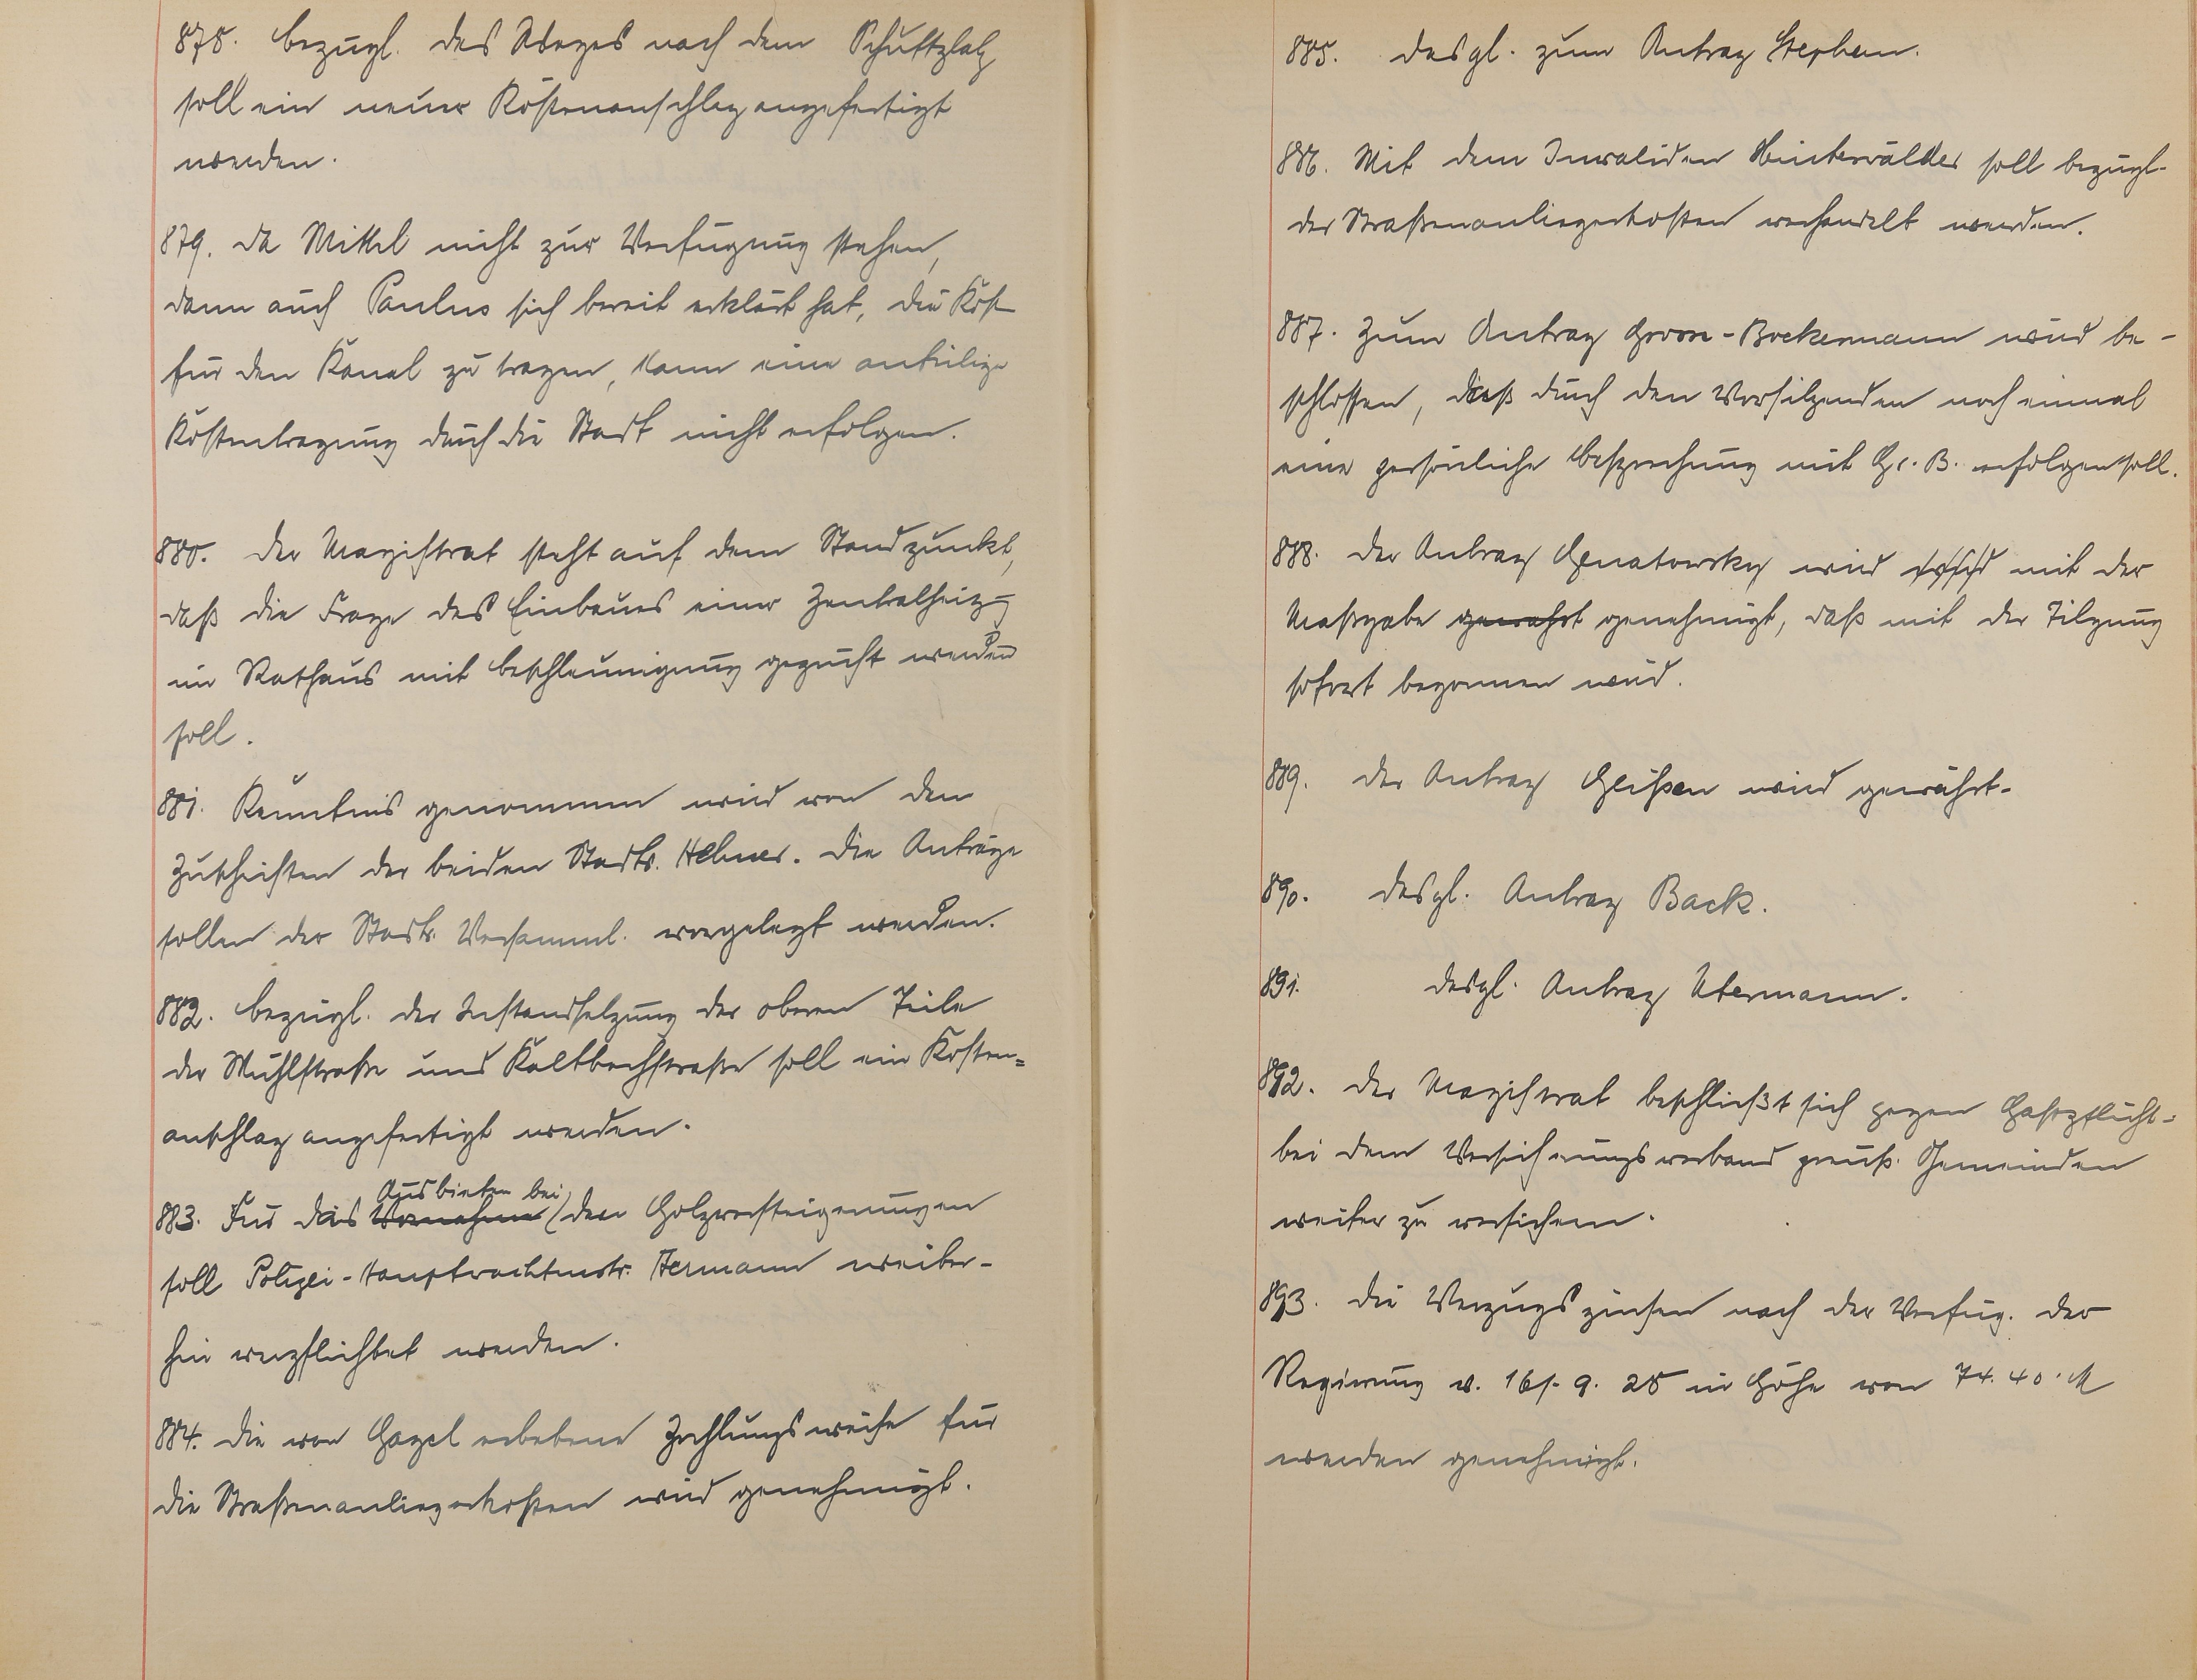 878. bezügl. des Weges nach dem Schuttplatz
soll ein neuer Kostenanschlag angefertigt
werden.
879. Da Mittel nicht zur Verfügung stehen,
dann auch Paulus sich bereit erklärt hat, die Kost
für den Kanal zu tragen, kann eine anteilige
Kostentragung durch die Stadt nicht erfolgen.
880. Der Magistrat steht auf dem Standpunkt,
daß die Frage des Einbaues einer Zentralheizg
im Rathaus mit Beschleunigung geprüft werden
soll.
881. Kenntnis genommen wird von den
Zuschriften der beiden Stadtv. Helmer. Die Anträge
sollen der Stadtv. Versamml. vorgelegt werden.
882. bezügl. der Instandsetzung der oberen Teile
der Mühlstraße und Kaltbachstraße soll ein Kosten=
anschlag angefertigt werden.
Ausbieten bei
883. Für das Vornahme den Holzversteigerungen
soll Polizei-Hauptwachtmstr. Hermann weiter-
hin verpflichtet werden.
884. Die von erbetene Zahlungsweise für
die Straßenanliegerkosten wird genehmigt.
885. desgl. zum Antrag Stephan.
886. Mit dem Invaliden Hinterwälder soll bezügl.
der Straßenanliegerkosten verhandelt werden.
887. Zum Antrag Grosse-Bockermann wird be-
schlossen, daß durch den Vorsitzenden noch einmal
eine persönliche Besprechung mit Gr. B. erfolgen soll.
888. Der Antrag wird mit der
Maßgabe gewährt genehmigt, daß mit der Tilgung
sofort begonnen wird.
889. Der Antrag Geißen wird gewährt.
890. desgl. Antrag Back.
891. desgl. Antrag Utermann.
892. Der Magistrat beschließt sich gegen Haftpflicht=
bei dem Versicherungsverband preuß. Gemeinden
weiter zu versichern.
893. Die Verzugszinsen nach der Verfüg. der
Regierung v. 16/. 9. 28 in Höhe von 74.40 M
werden genehmigt.